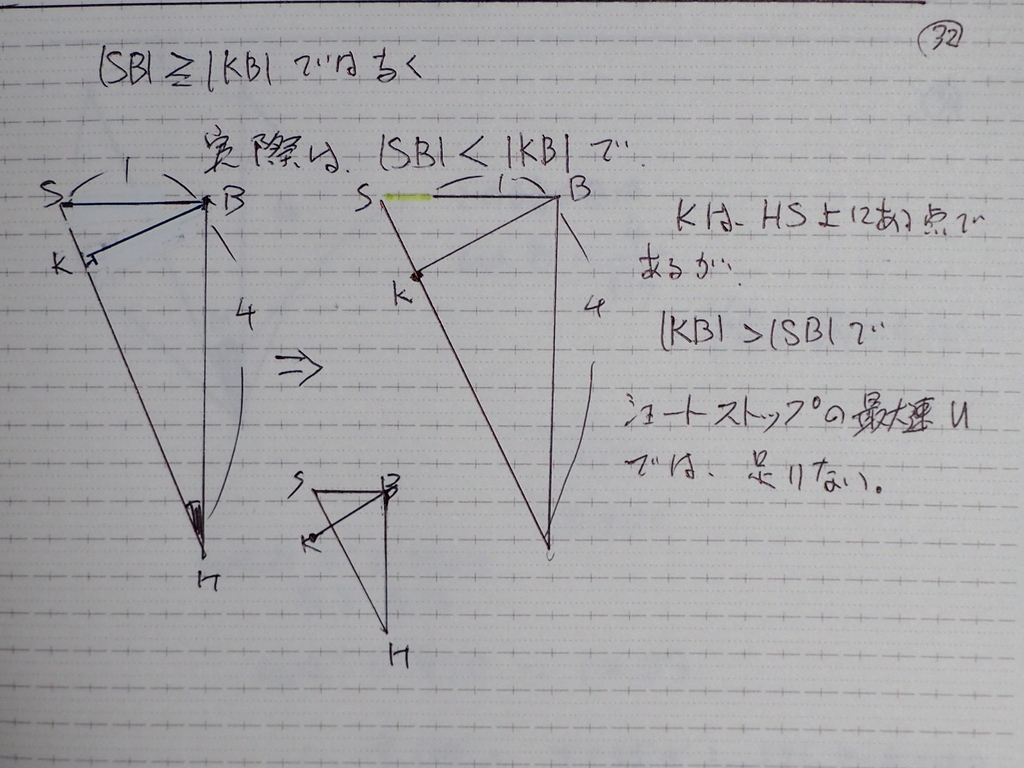 32
|SB| ≧ |KB| ではなく
実際は、|SB| < |KB| で、
S 1 B
K
4
H
⇒
S 1 B
K
4
S B
K
H
Kは、HS上にある点で
あるが、
|KB| > |SB| で
ショートストップの最大速 u
では、足りない。